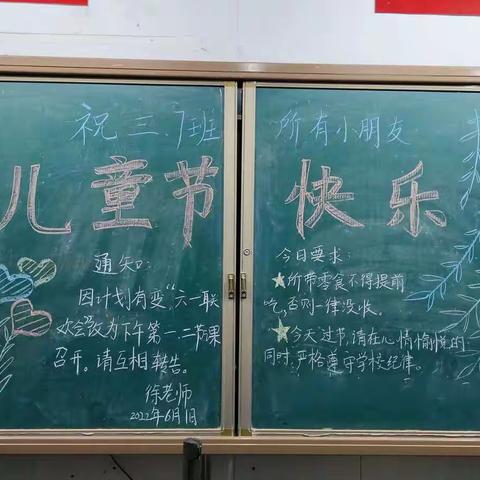 祝三.7班 所有小朋友
儿童节 快乐
通知:
因计划有变,“六一联
欢会”改为下午第一、二节课
召开。请互相转告。
徐老师
2022年6月1日
今日要求:
★所带零食不得提前
吃,否则一律没收。
★今天过节,请在心情愉悦的
同时,严格遵守学校纪律。